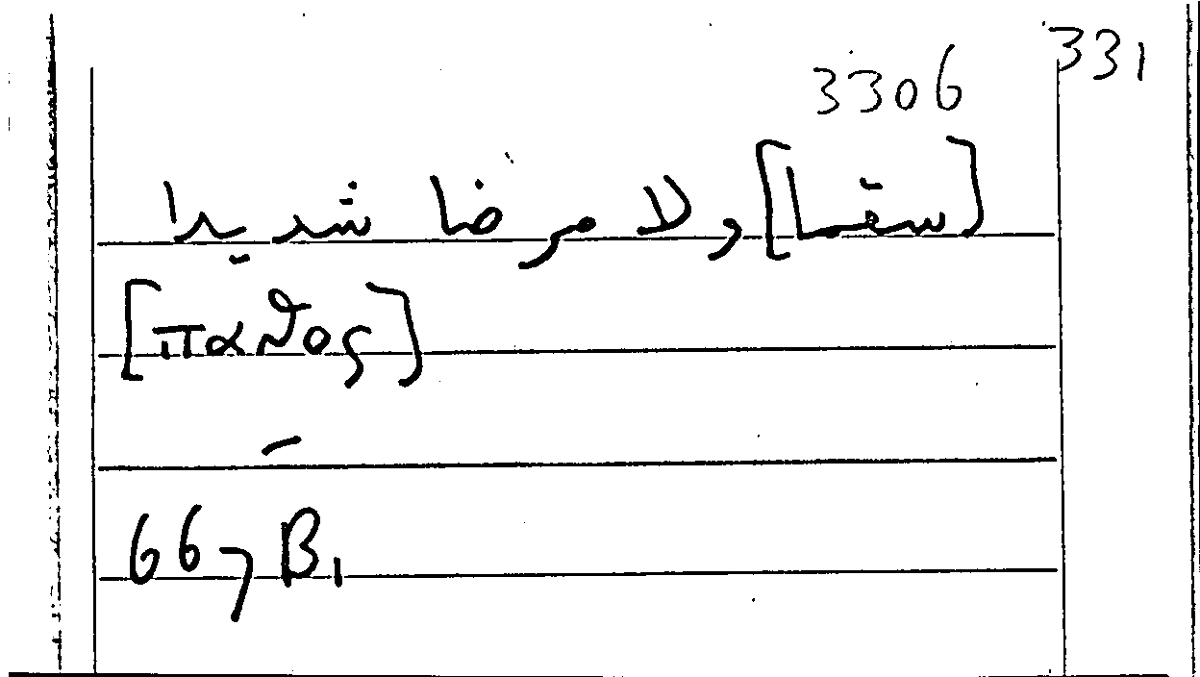 331
3306
[سقما] ولا مرضا شديدا
[παϑος]
–
667 B1